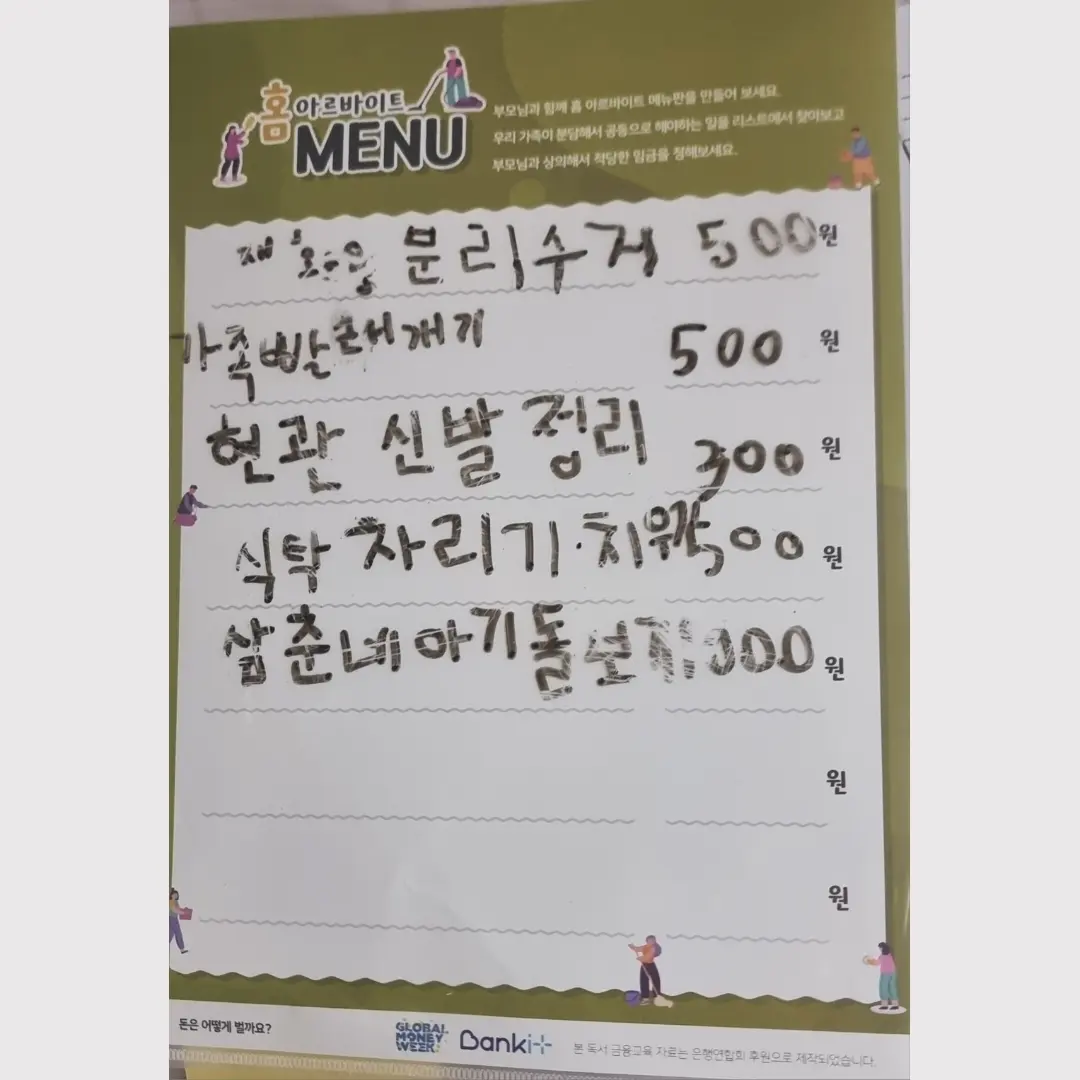 홈 아르바이트
MENU
부모님과 함께 홈 아르바이트 메뉴판을 만들어 보세요.
우리 가족이 분담해서 공동으로 해야하는 일을 리스트에서 찾아보고
부모님과 상의해서 적당한 임금을 정해보세요.
재활용 분리수거 500원
가족빨래개기 500 원
현관 신발 정리 300 원
식탁 차리기·치우기 500 원
삼춘네 아기 돌보기 원
원
원
돈은 어떻게 벌까요?
GLOBAL MONEY WEEK
Banki+
본 독서 금융교육 자료는 은행연합회 후원으로 제작되었습니다.